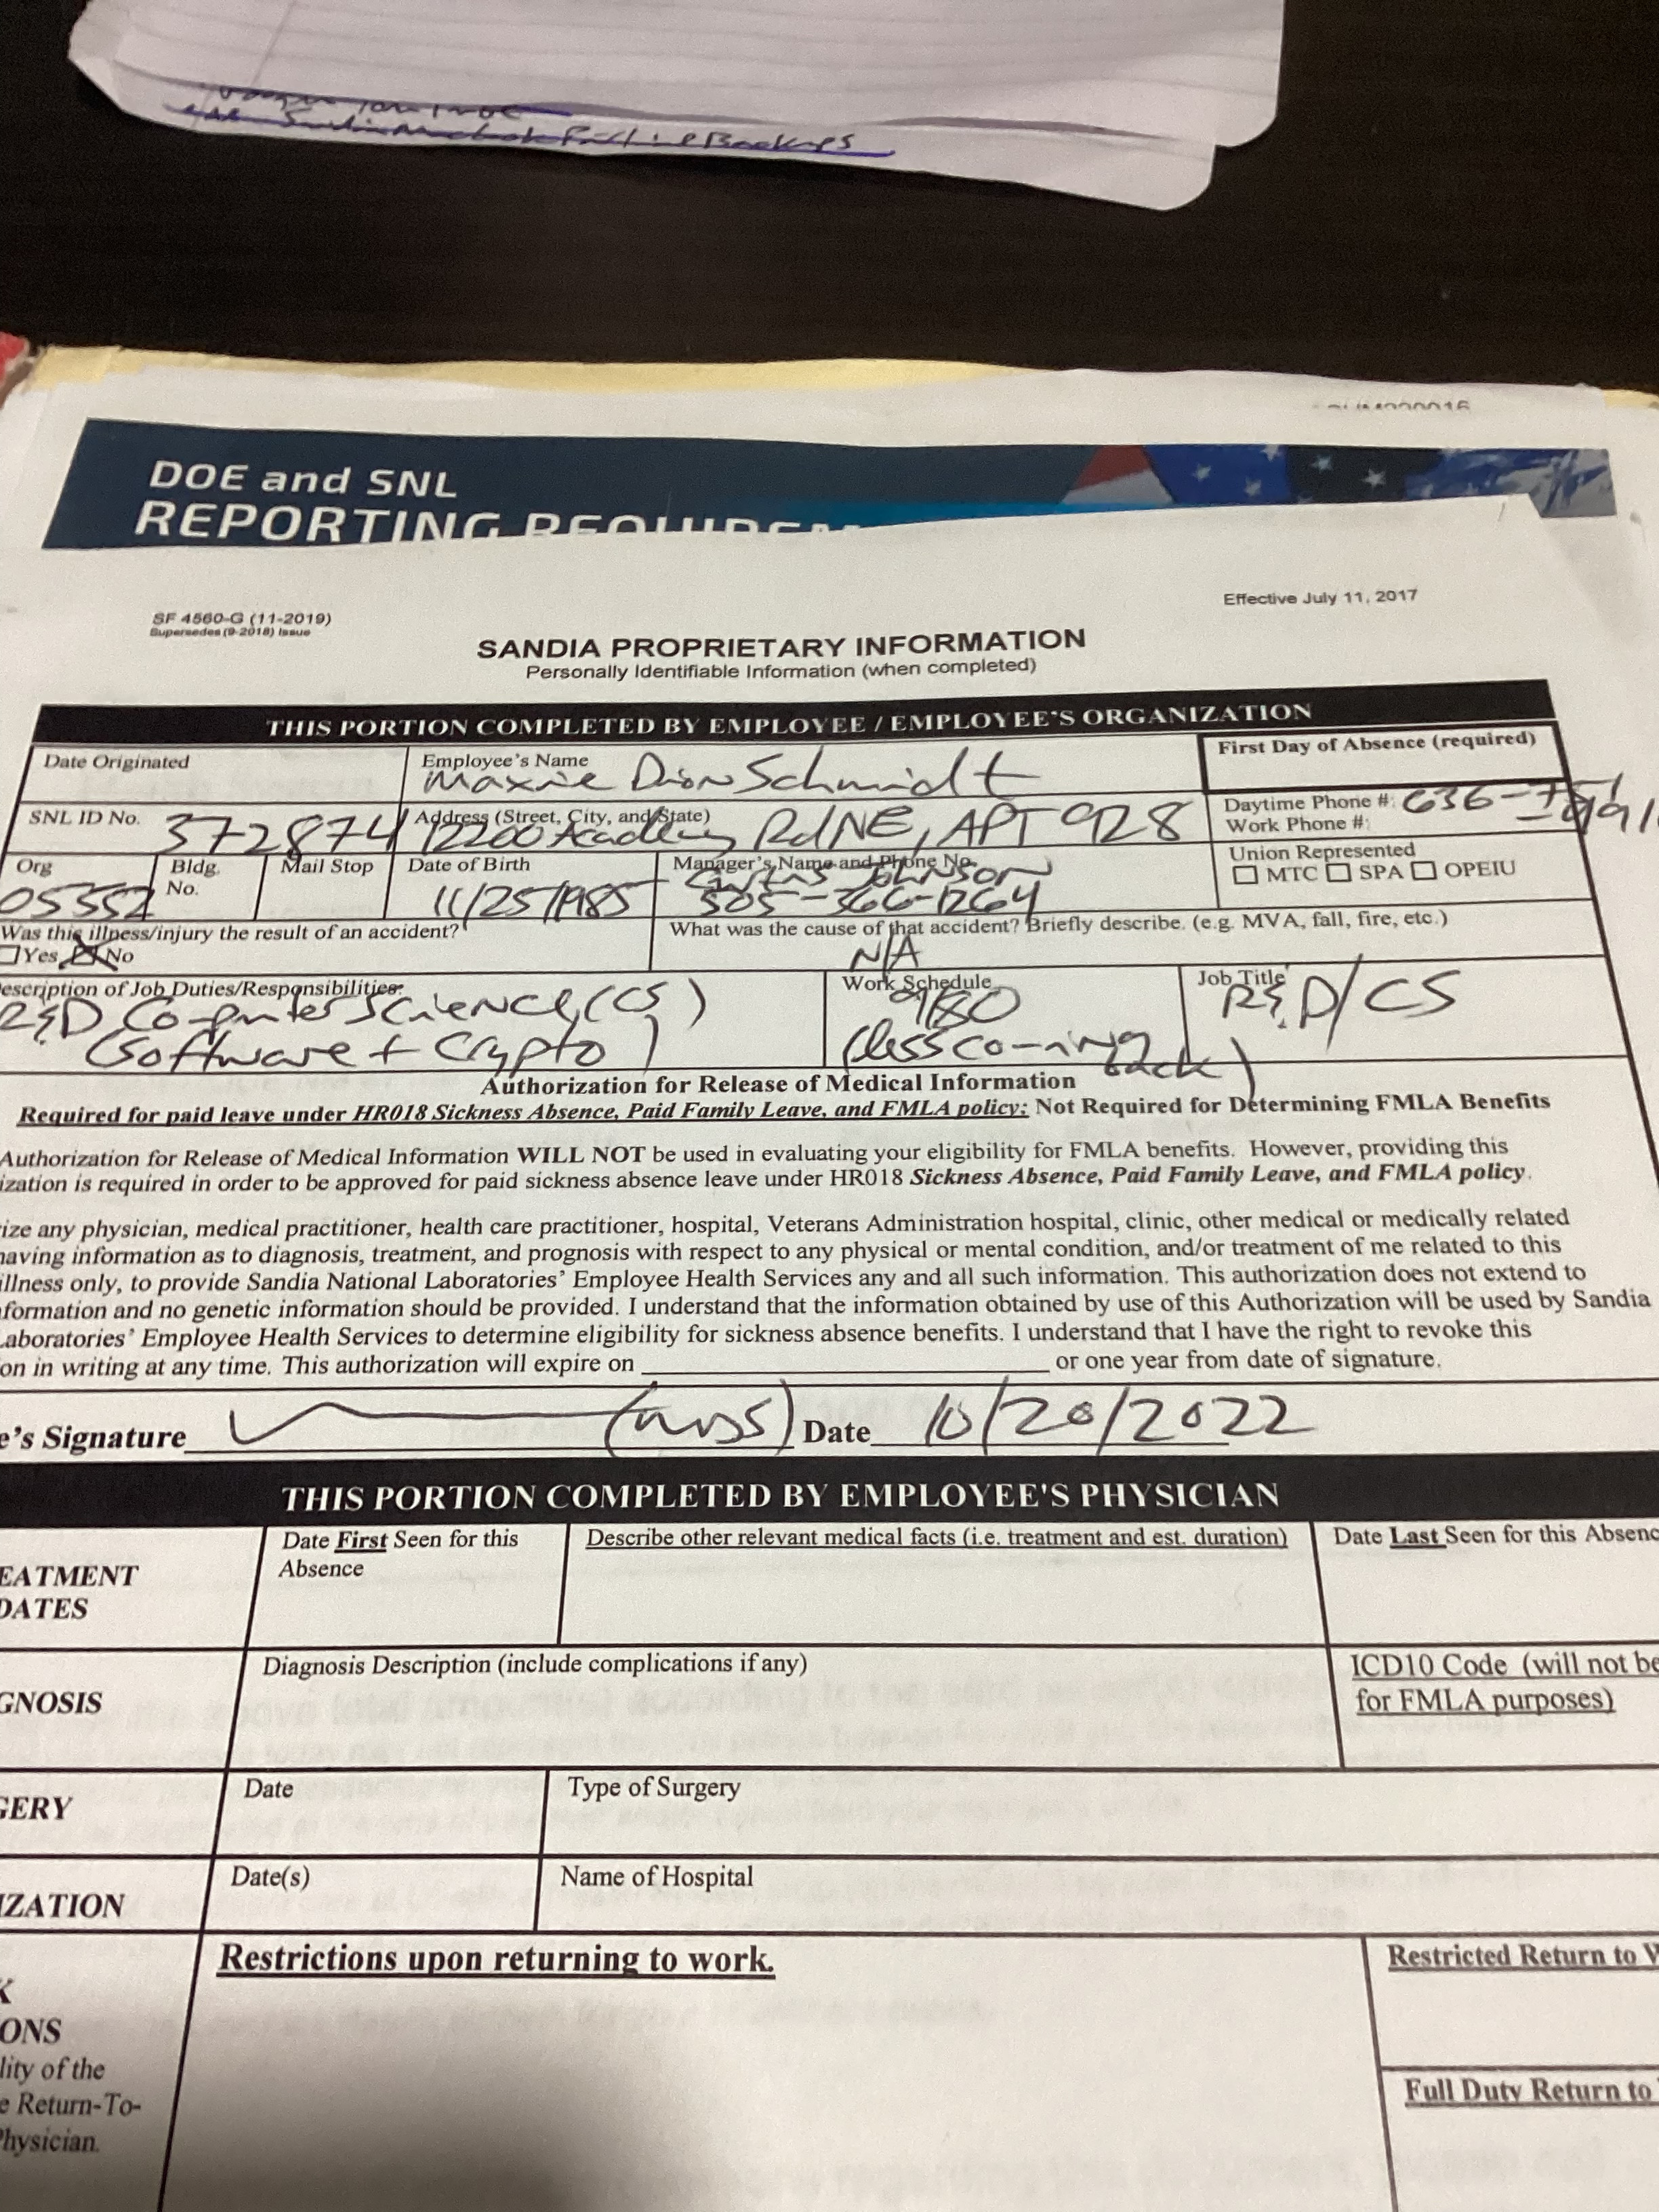 Backups
DOE and SNL
REPORTING REQUIREM
SF 4560-G (11-2019)
Supersedes (9-2018) Issue
Effective July 11, 2017
SANDIA PROPRIETARY INFORMATION
Personally Identifiable Information (when completed)
THIS PORTION COMPLETED BY EMPLOYEE / EMPLOYEE'S ORGANIZATION
Date Originated
Employee's Name
Maxie Dion Schmidt
First Day of Absence (required)
SNL ID No.
372874
Address (Street, City, and State)
12200 Academy Rd NE, APT 928
Daytime Phone #: 636-
Work Phone #:
Org
05552
Bldg. No.
Mail Stop
Date of Birth
11/25/1985
Manager's Name and Phone No.
Johnson
505-366-1264
Union Represented
MTC SPA OPEIU
Was this illness/injury the result of an accident?
Yes No
What was the cause of that accident? Briefly describe. (e.g. MVA, fall, fire, etc.)
N/A
escription of Job Duties/Responsibilities:
R&D Computer Science (CS)
(Software + Crypto)
Work Schedule
9/80
(less coming back)
Job Title
R&D/CS
Authorization for Release of Medical Information
Required for paid leave under HR018 Sickness Absence, Paid Family Leave, and FMLA policy; Not Required for Determining FMLA Benefits
Authorization for Release of Medical Information WILL NOT be used in evaluating your eligibility for FMLA benefits. However, providing this
ization is required in order to be approved for paid sickness absence leave under HR018 Sickness Absence, Paid Family Leave, and FMLA policy.
ize any physician, medical practitioner, health care practitioner, hospital, Veterans Administration hospital, clinic, other medical or medically related
having information as to diagnosis, treatment, and prognosis with respect to any physical or mental condition, and/or treatment of me related to this
illness only, to provide Sandia National Laboratories' Employee Health Services any and all such information. This authorization does not extend to
formation and no genetic information should be provided. I understand that the information obtained by use of this Authorization will be used by Sandia
Laboratories' Employee Health Services to determine eligibility for sickness absence benefits. I understand that I have the right to revoke this
on in writing at any time. This authorization will expire on or one year from date of signature.
e's Signature (MDS) Date 10/20/2022
THIS PORTION COMPLETED BY EMPLOYEE'S PHYSICIAN
EATMENT
DATES
Date First Seen for this
Absence
Describe other relevant medical facts (i.e. treatment and est. duration)
Date Last Seen for this Absenc
GNOSIS
Diagnosis Description (include complications if any)
ICD10 Code (will not be
for FMLA purposes)
GERY
Date
Type of Surgery
IZATION
Date(s)
Name of Hospital
K
ONS
lity of the
e Return-To-
Physician.
Restrictions upon returning to work.
Restricted Return to W
Full Duty Return to